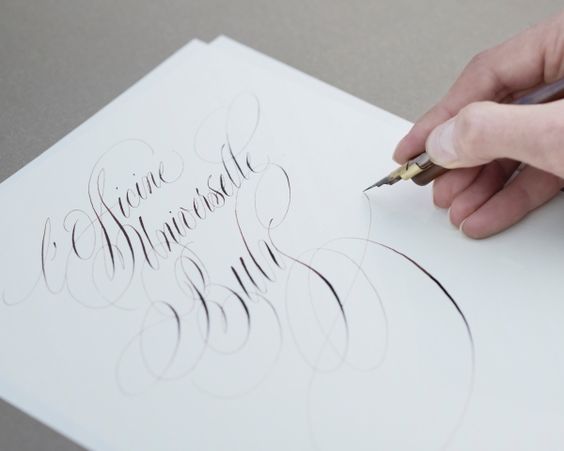 l'Officine
Universelle
Buly